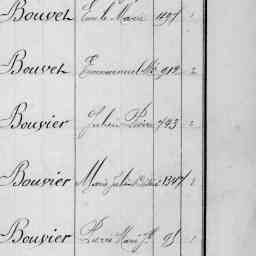 Bouvet Emile Marie 1497
Bouvet Emmanuel 912 2
Bouvier Julien Pierre 793 2
Bouvier Marie Julien 1347
Bouvier Pierre Marie 95